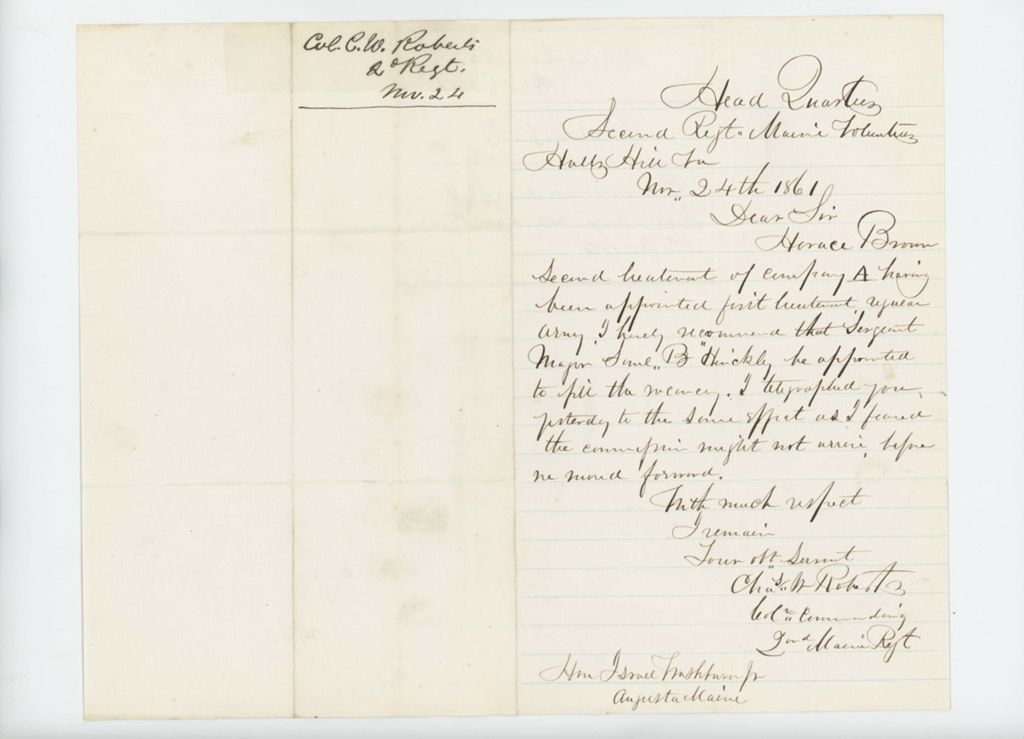 Col. C. W. Roberts
2d Regt.
Nov. 24
Head Quarters
Second Regt. Maine Volunteers
Halls Hill Va
Nov. 24th 1861
Dear Sir
Horace Brown
second lieutenant of company A having
been appointed first lieutenant, regular
army, I herely recommend that Sergeant
Major Saml. B Hinckly be appointed
to fill the vacancy. I telegraphed you,
yesterday to the same effect as I feared
the commission might not arrive, before
we moved forward.
With much respect
I remain
Your obt Servant
Chas. W Roberts
Col. Commanding
2ond Maine Regt
Hon Israel Washburn Jr
Augusta Maine